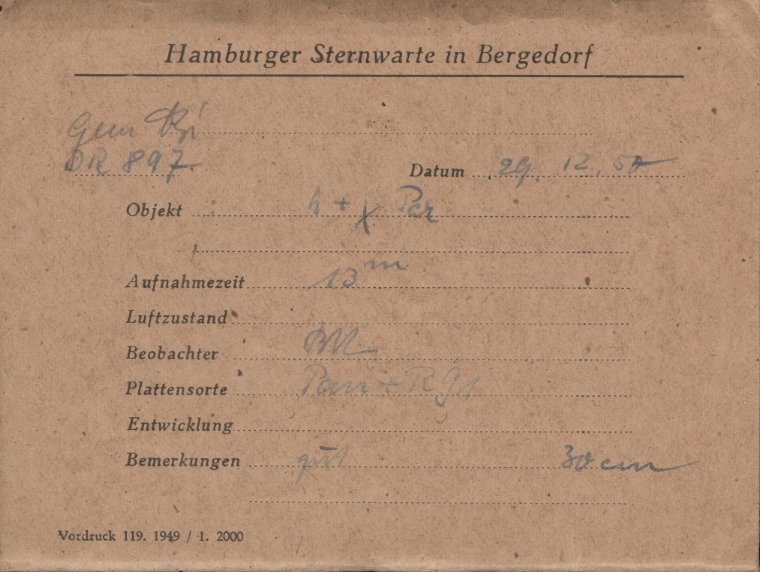 Hamburger Sternwarte in Bergedorf
DR 897.
Datum 29. 12. 50
Objekt h + χ Per
Aufnahmezeit 13 m
Luftzustand
Beobachter
Plattensorte Pan +
Entwicklung
Bemerkungen gut 30 cm
Vordruck 119. 1949 / 1. 2000